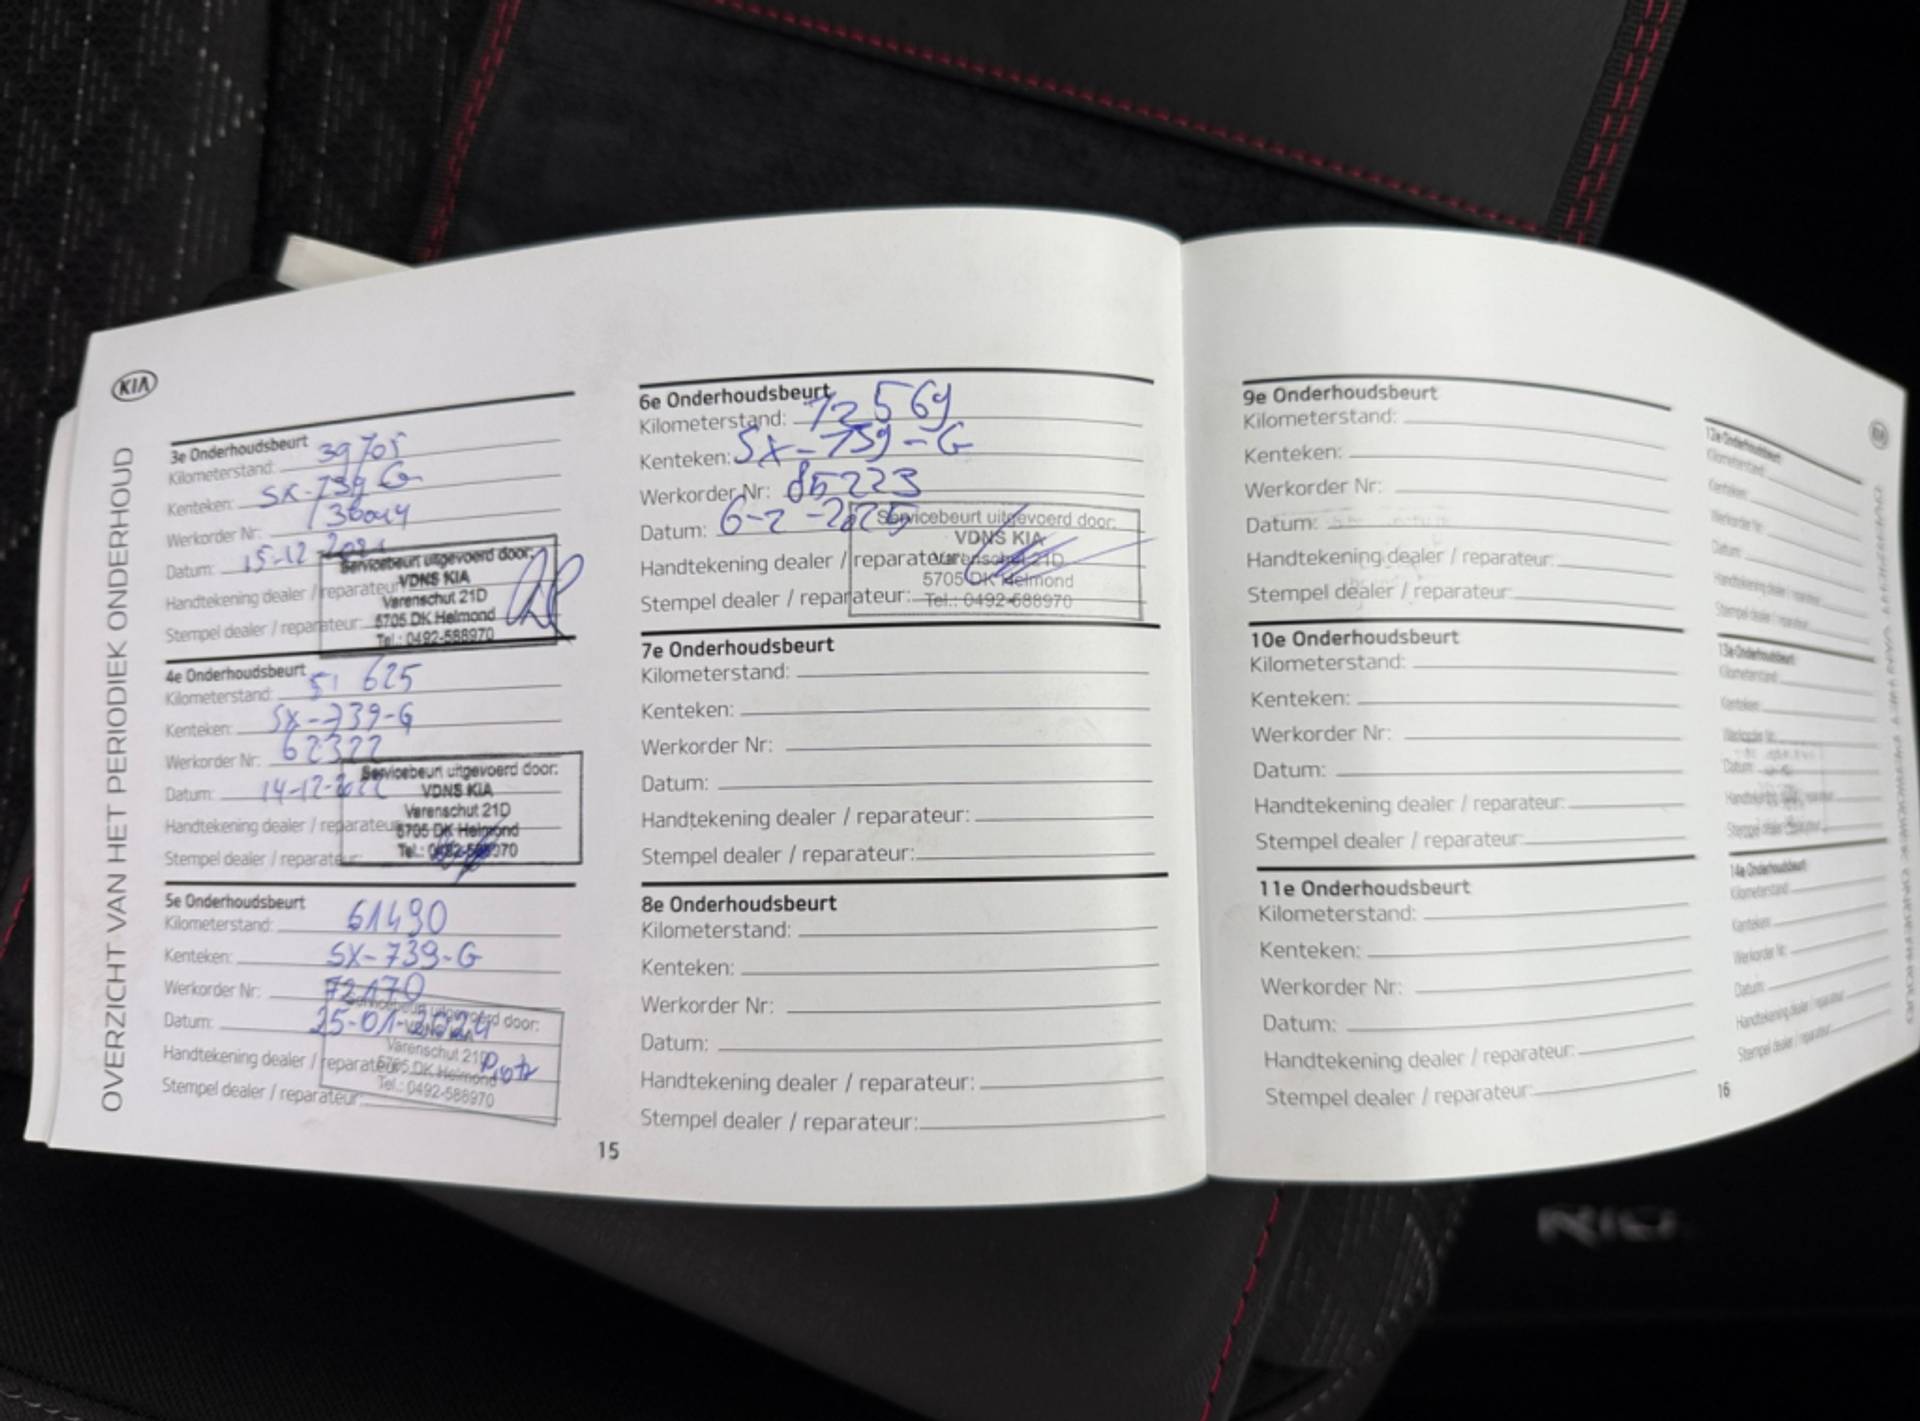 KIA
OVERZICHT VAN HET PERIODIEK ONDERHOUD
3e Onderhoudsbeurt
Kilometerstand: 39705
Kenteken: SX-739 G
Werkorder Nr:
Datum: 15-12 2021
Handtekening dealer / reparateur:
Stempel dealer / reparateur:
Servicebeurt uitgevoerd door:
VDNS KIA
Varenschut 21D
5705 DK Helmond
Tel.: 0492-588970
4e Onderhoudsbeurt
Kilometerstand: 51 625
Kenteken: SX-739-G
Werkorder Nr: 62322
Datum: 14-12-2022
Handtekening dealer / reparateur:
Stempel dealer / reparateur:
Servicebeurt uitgevoerd door:
VDNS KIA
Varenschut 21D
5705 DK Helmond
Tel.: 0492-588970
5e Onderhoudsbeurt
Kilometerstand: 61490
Kenteken: SX-739-G
Werkorder Nr: 72170
Datum: 25-01-2024
Handtekening dealer / reparateur:
Stempel dealer / reparateur:
Servicebeurt uitgevoerd door:
VDNS KIA
Varenschut 21D
5705 DK Helmond
Tel.: 0492-588970
6e Onderhoudsbeurt
Kilometerstand: 72569
Kenteken: SX-739-G
Werkorder Nr: 85223
Datum: 6-2-2025
Handtekening dealer / reparateur:
Stempel dealer / reparateur:
Servicebeurt uitgevoerd door:
VDNS KIA
Varenschut 21D
5705 DK Helmond
Tel.: 0492-588970
7e Onderhoudsbeurt
Kilometerstand:
Kenteken:
Werkorder Nr:
Datum:
Handtekening dealer / reparateur:
Stempel dealer / reparateur:
8e Onderhoudsbeurt
Kilometerstand:
Kenteken:
Werkorder Nr:
Datum:
Handtekening dealer / reparateur:
Stempel dealer / reparateur:
15
9e Onderhoudsbeurt
Kilometerstand:
Kenteken:
Werkorder Nr:
Datum:
Handtekening dealer / reparateur:
Stempel dealer / reparateur:
10e Onderhoudsbeurt
Kilometerstand:
Kenteken:
Werkorder Nr:
Datum:
Handtekening dealer / reparateur:
Stempel dealer / reparateur:
11e Onderhoudsbeurt
Kilometerstand:
Kenteken:
Werkorder Nr:
Datum:
Handtekening dealer / reparateur:
Stempel dealer / reparateur:
12e Onderhoudsbeurt
Kilometerstand:
Kenteken:
Werkorder Nr:
Datum:
Handtekening dealer / reparateur:
Stempel dealer / reparateur:
13e Onderhoudsbeurt
Kilometerstand:
Kenteken:
Werkorder Nr:
Datum:
Handtekening dealer / reparateur:
Stempel dealer / reparateur:
14e Onderhoudsbeurt
Kilometerstand:
Kenteken:
Werkorder Nr:
Datum:
Handtekening dealer / reparateur:
Stempel dealer / reparateur:
16